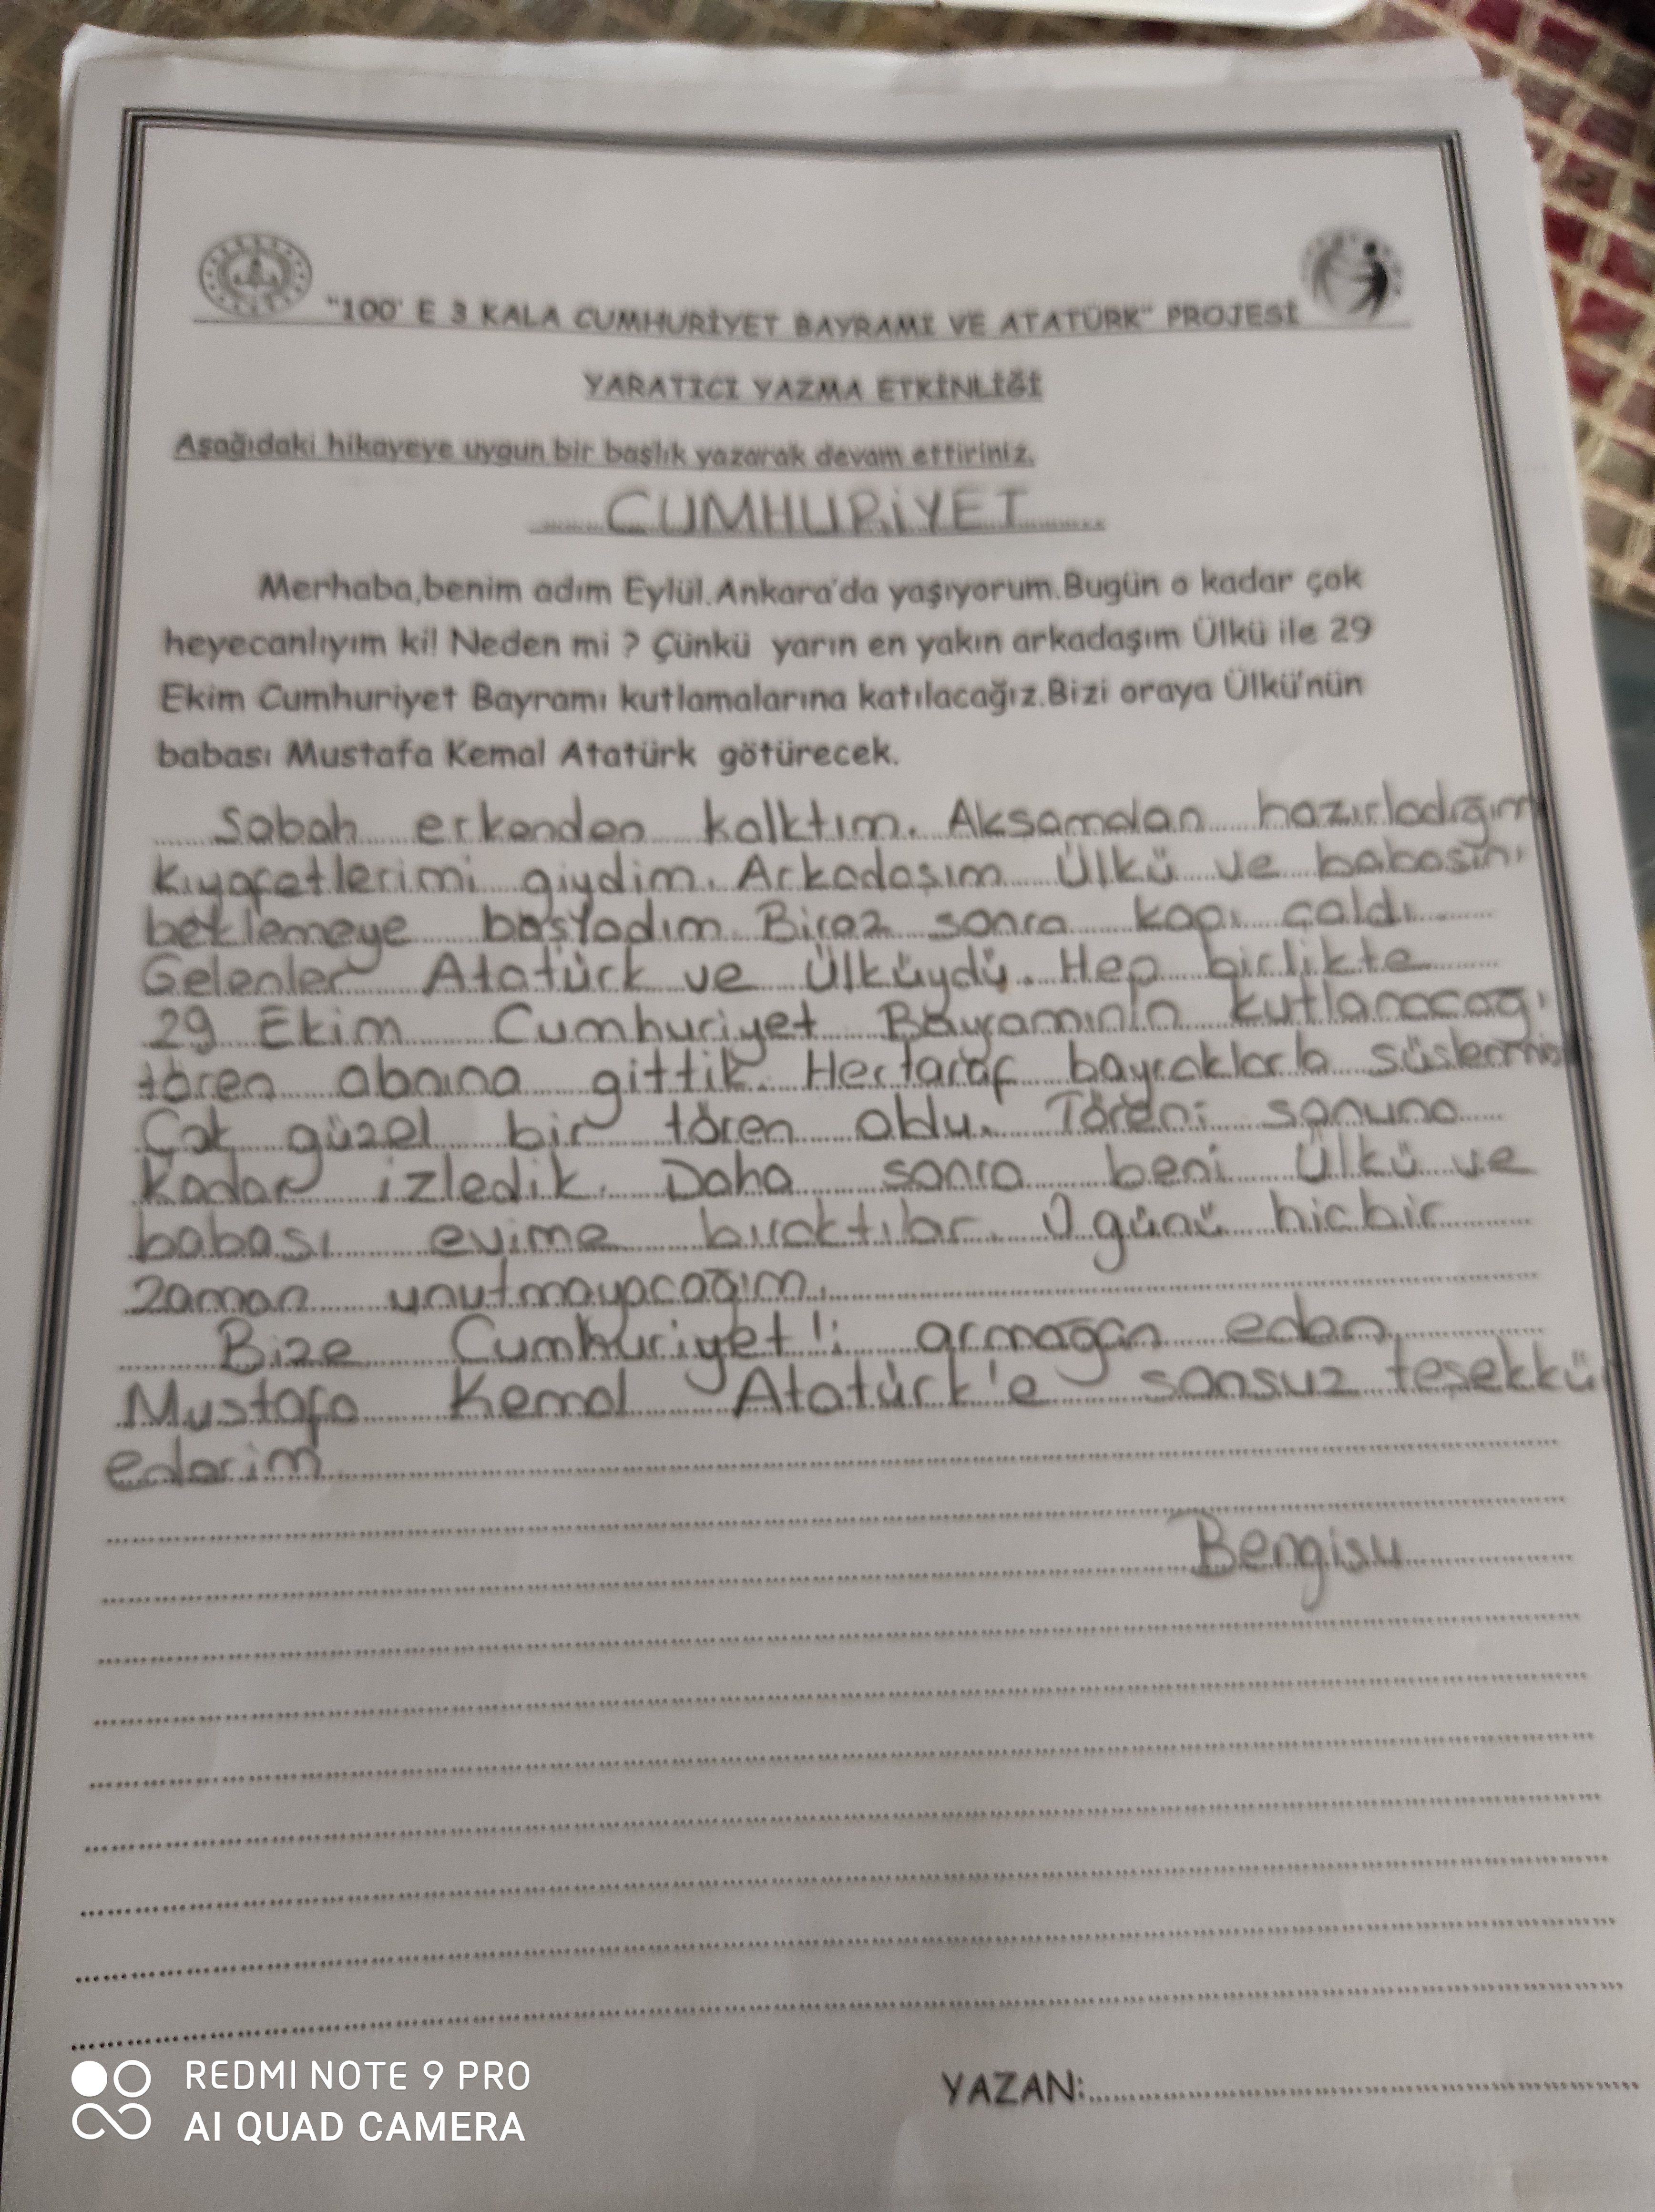 "100' E 3 KALA CUMHURİYET BAYRAMI VE ATATÜRK" PROJESİ
YARATICI YAZMA ETKİNLİĞİ
Aşağıdaki hikayeye uygun bir başlık yazarak devam ettiriniz.
CUMHURİYET
Merhaba,benim adım Eylül.Ankara'da yaşıyorum.Bugün o kadar çok
heyecanlıyım ki! Neden mi ? Çünkü yarın en yakın arkadaşım Ülkü ile 29
Ekim Cumhuriyet Bayramı kutlamalarına katılacağız.Bizi oraya Ülkü'nün
babası Mustafa Kemal Atatürk götürecek.
Sabah erkenden kalktım. Akşamdan hazırladığım
kıyafetlerimi giydim. Arkadaşım Ülkü ve babasını
beklemeye başladım. Biraz sonra kapı çaldı.
Gelenler Atatürk ve Ülküydü. Hep birlikte
29 Ekim Cumhuriyet Bayramının kutlanacağı
tören alanına gittik. Hertaraf bayraklarla
Çok güzel bir tören oldu. Töreni sonuna
kadar izledik. Daha sonra beni Ülkü ve
babası evime bıraktılar. O günü hiçbir
zaman unutmayacağım.
Bize Cumhuriyet'i armağan eden
Mustafa Kemal Atatürk'e sonsuz teşekkür
ederim
Bengisu
YAZAN:
REDMI NOTE 9 PRO
AI QUAD CAMERA